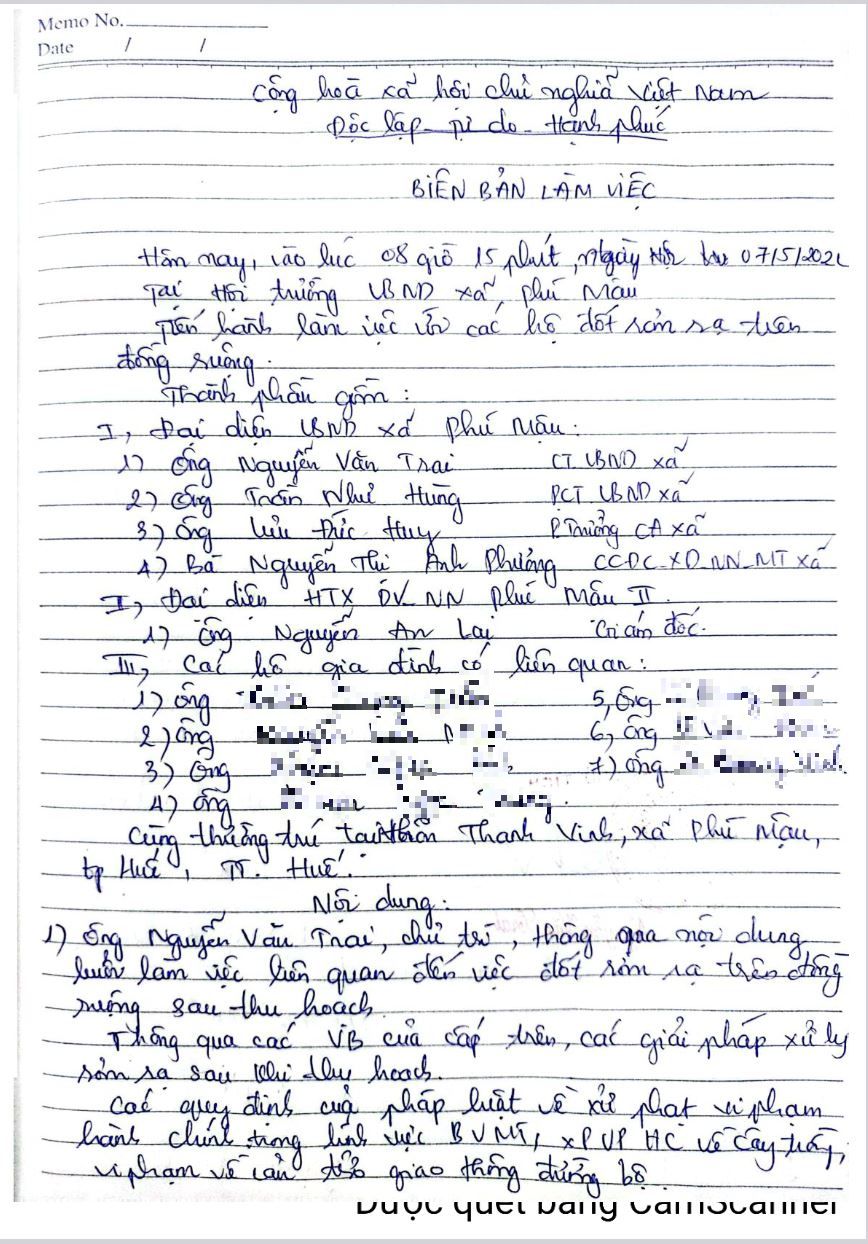 Memo No.
Date / /
Cộng hoà xã hội chủ nghĩa Việt Nam
Độc lập - Tự do - Hạnh phúc
BIÊN BẢN LÀM VIỆC
Hôm nay, vào lúc 08 giờ 15 phút, ngày 07/5/202
Tại Hội trường UBND xã, Phú Mậu
Tiến hành làm việc với các hộ đốt rơm rạ trên
đồng ruộng.
Thành phần gồm:
I, Đại diện UBND xã Phú Mậu:
1) Ông Nguyễn Văn Trai CT UBND xã
2) Ông Trần Như Hùng PCT UBND xã
3) Ông Lưu Đức Huy P.Trưởng CA xã
4) Bà Nguyễn Thị Ánh Phượng CCĐC_XD_NN_MT xã
I, Đại diện HTX DV NN Phú Mậu II.
1) Ông Nguyễn An Lai Giám đốc.
III, Các hộ gia đình có liên quan:
1) Ông 5, Ông
2) Ông 6, Ông
3) Ông 7) Ông
4) Ông
Cùng thường trú tại thôn Thanh Vinh, xã Phú Mậu,
tp Huế, TT. Huế.
Nội dung:
1) Ông Nguyễn Văn Trai, chủ trì, thông qua nội dung
buổi làm việc liên quan đến việc đốt rơm rạ trên đồng
ruộng sau thu hoạch.
Thông qua các VB của cấp trên, các giải pháp xử lý
rơm rạ sau khi thu hoạch.
Các quy định của pháp luật về xử phạt vi phạm
hành chính trong lĩnh vực BVMT, XPVP HC về cây trồng,
vi phạm về cản trở giao thông đường bộ.
Được quét bằng CamScanner